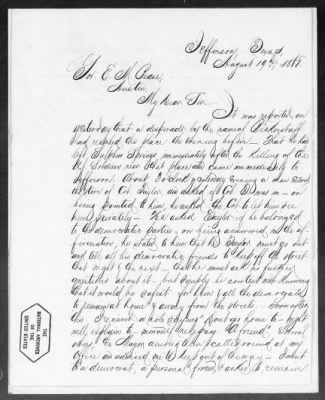 Jefferson, Texas,
August 19th, 186
Gov. E. M. Pease
Austin
My Dear Sir
It was reported on
yesterday that a desperado by the name of
had reached this place the evening before - That he had
left Sulphur Springs immediately after the killing of the
Soldiers near that place and came immediately to
Jefferson. About 3 o'clock yesterday evening a man entered
the store of Col Taylor and asked if Col T was in - on
being pointed to him, he asked the Col to let him see
him privately - He asked Taylor if he belonged
to the democratic party - on being answered in the af-
firmative, he stated to him that he Taylor must go out
and tell all his democratic friends to keep off the streets
that night & the next - that he must ask no further
questions about it - but be content with knowing
that it would be safest for him & all the democrats
to remain at home & away from the streets - Soon after
the received a note saying "Don't go home to-night
nor sleep in a room" "A friend." Several
others, the Mayor among them called round at my
Office and advised me to keep out of the way -
a democrat, a personal friend asked to remain
THE NATIONAL ARCHIVES OF THE UNITED STATES